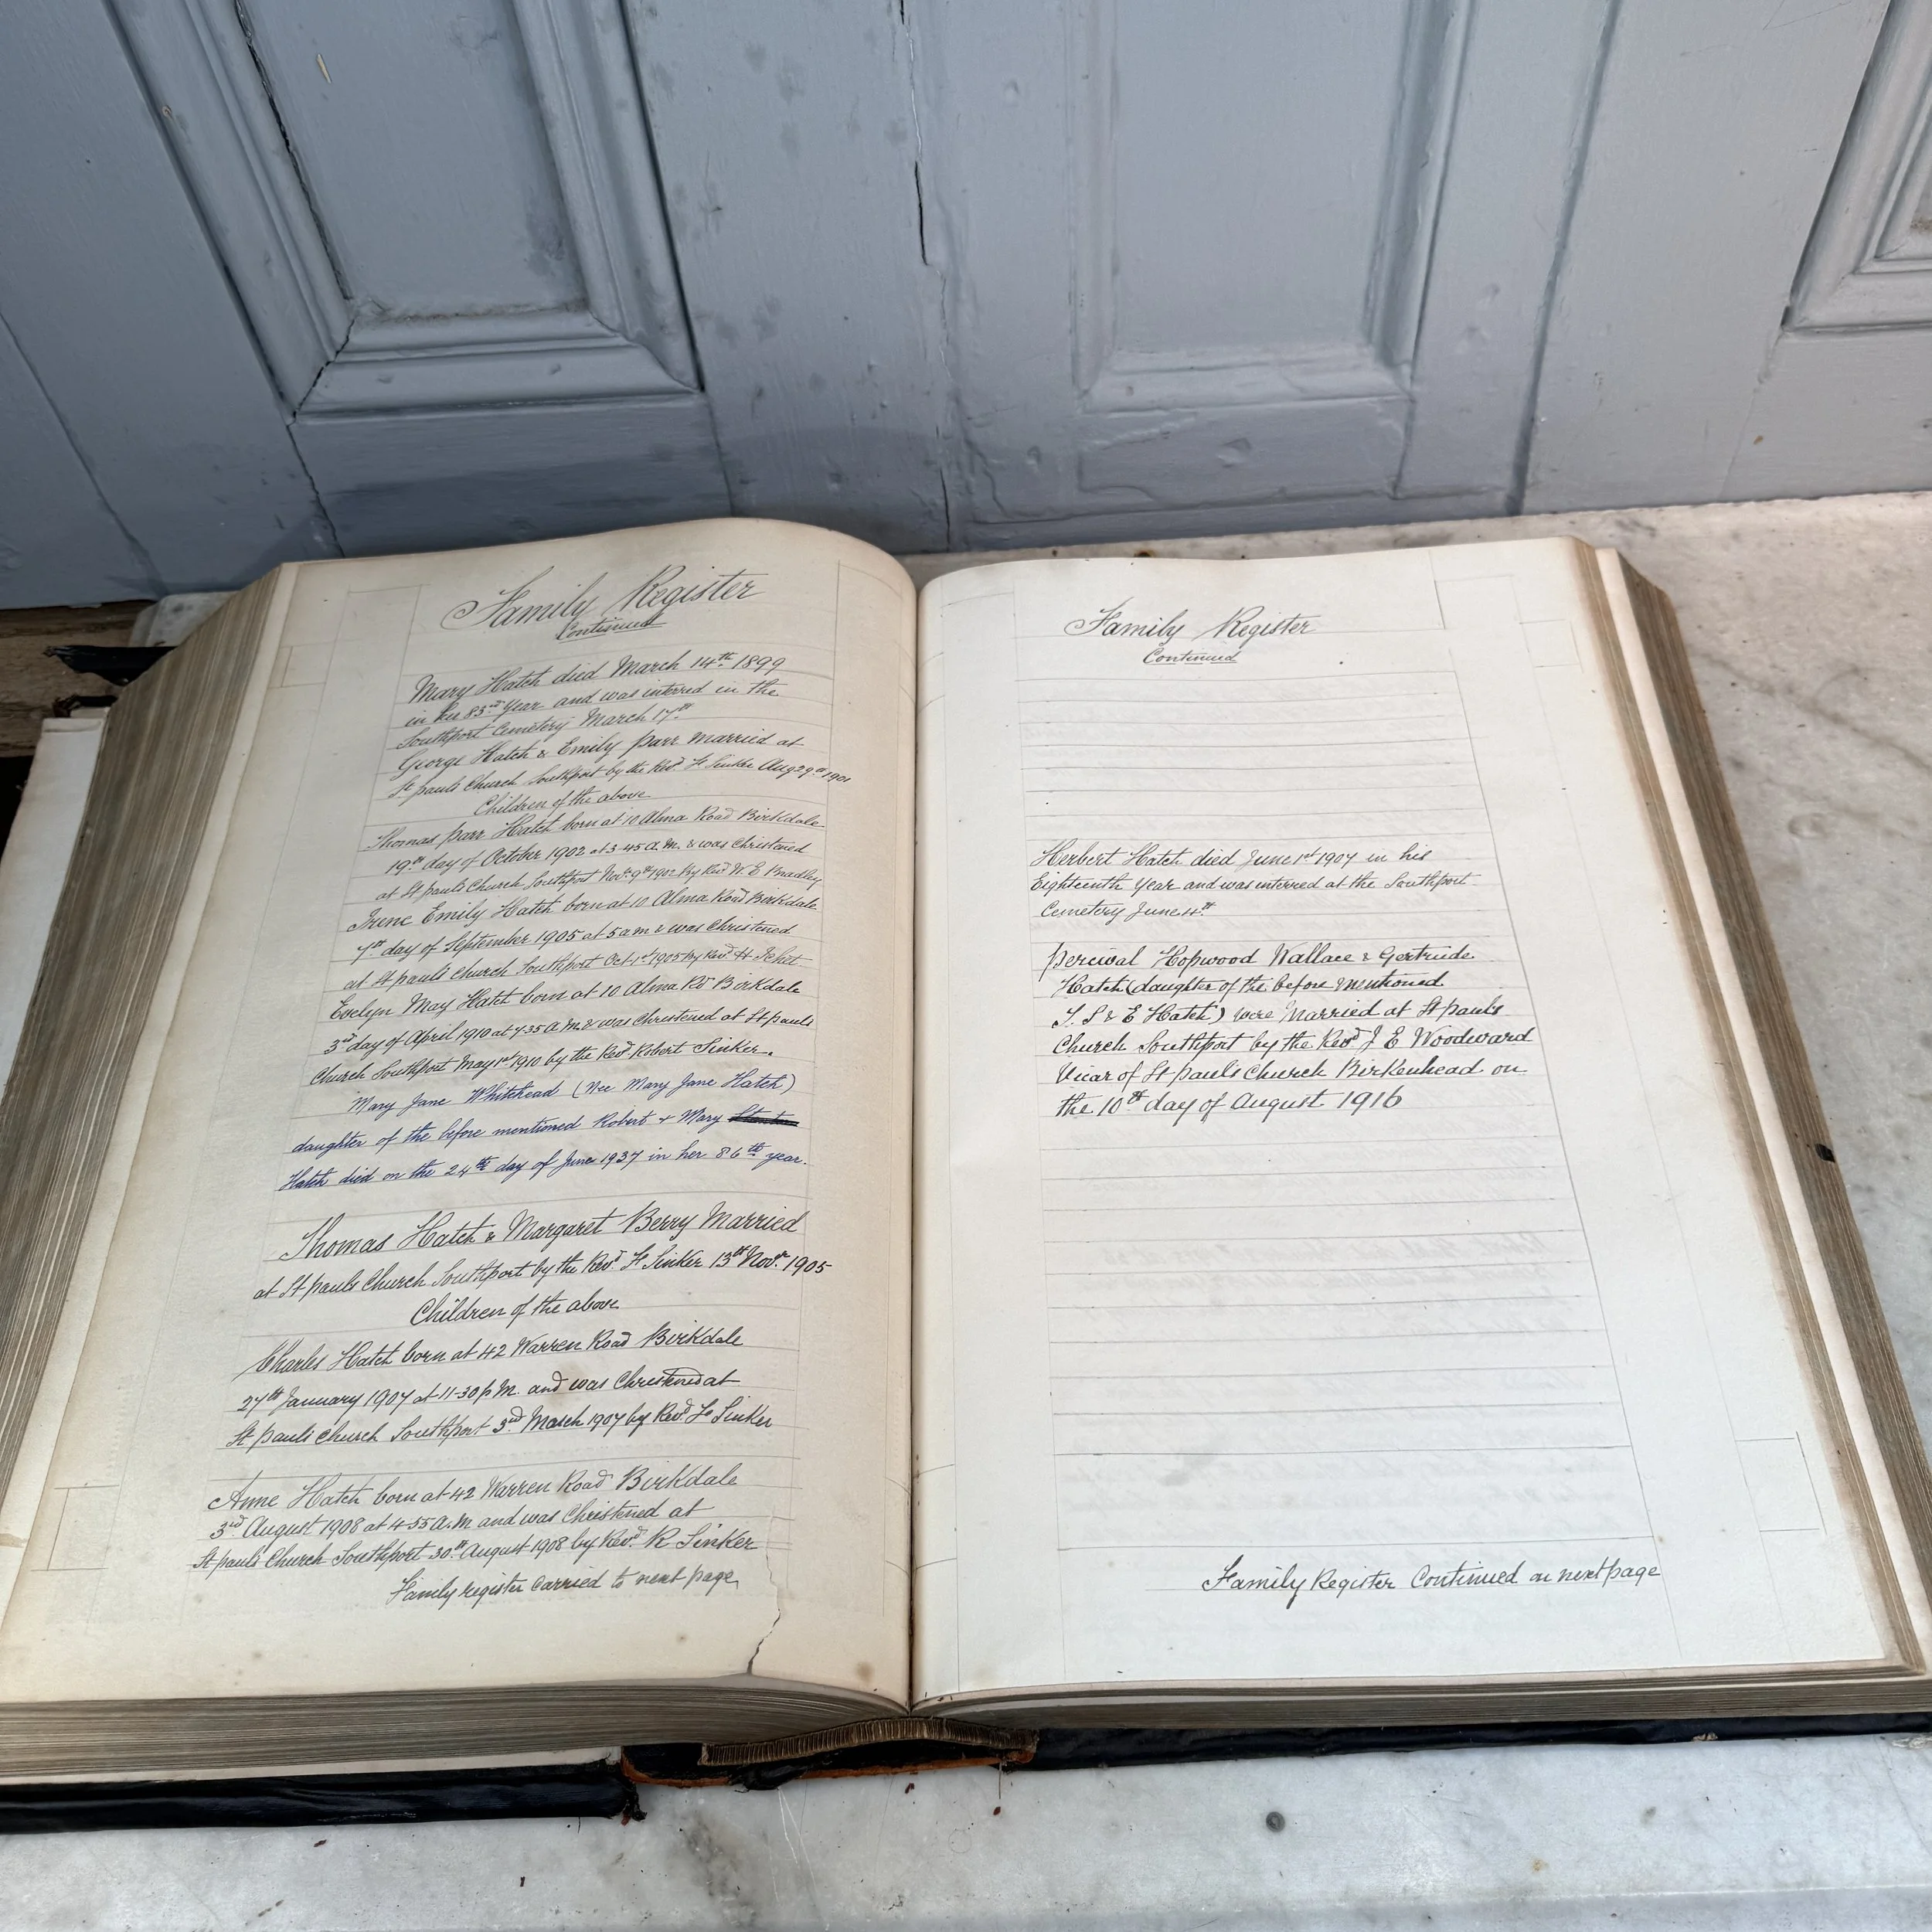 Family Register
Continued
Mary Hatch died March 14th 1899
in her 83rd Year and was interred in the
Southport Cemetery March 17th
George Hatch & Emily Parr Married at
St Pauls Church Southport by the Revd F Sinker Aug 29th 1901
Children of the above
Thomas Parr Hatch born at 10 Alma Road Birkdale
19th day of October 1902 at 3-45 A.M. & was Christened
at St Pauls Church Southport Novr 9th 1902 by Revd W. E Bradley
Irene Emily Hatch born at 10 Alma Road Birkdale
7th day of September 1905 at 5 am & was Christened
at St Pauls Church Southport Oct 1st 1905 by Revd
Evelyn May Hatch born at 10 Alma Rd Birkdale
3rd day of April 1910 at 7-35 A.M. & was Christened at St Pauls
Church Southport May 1st 1910 by the Revd Robert Sinker.
Mary Jane Whitehead (Nee Mary Jane Hatch)
daughter of the before mentioned Robert & Mary
Hatch died on the 24th day of June 1937 in her 86th year.
Thomas Hatch & Margaret Berry Married
at St Pauls Church Southport by the Revd F Sinker 13th Novr 1905
Children of the above
Charles Hatch born at 42 Warren Road Birkdale
27th January 1907 at 11-30 p M. and was Christened at
St Pauls Church Southport 3rd March 1907 by Revd F Sinker
Anne Hatch born at 42 Warren Road Birkdale
3rd August 1908 at 4-55 A.M and was Christened at
St Pauls Church Southport 30th August 1908 by Revd R Sinker
Family register Carried to next page
Family Register
Continued
Herbert Hatch died June 1st 1907 in his
Eighteenth Year and was interred at the Southport
Cemetery June 4th
Percival Hopwood Wallace & Gertrude
Hatch (daughter of the before mentioned
T. S & E Hatch) were Married at St Pauls
Church Southport by the Revd J E Woodward
Vicar of St Pauls Church Birkenhead on
the 10th day of August 1916
Family Register Continued on next page